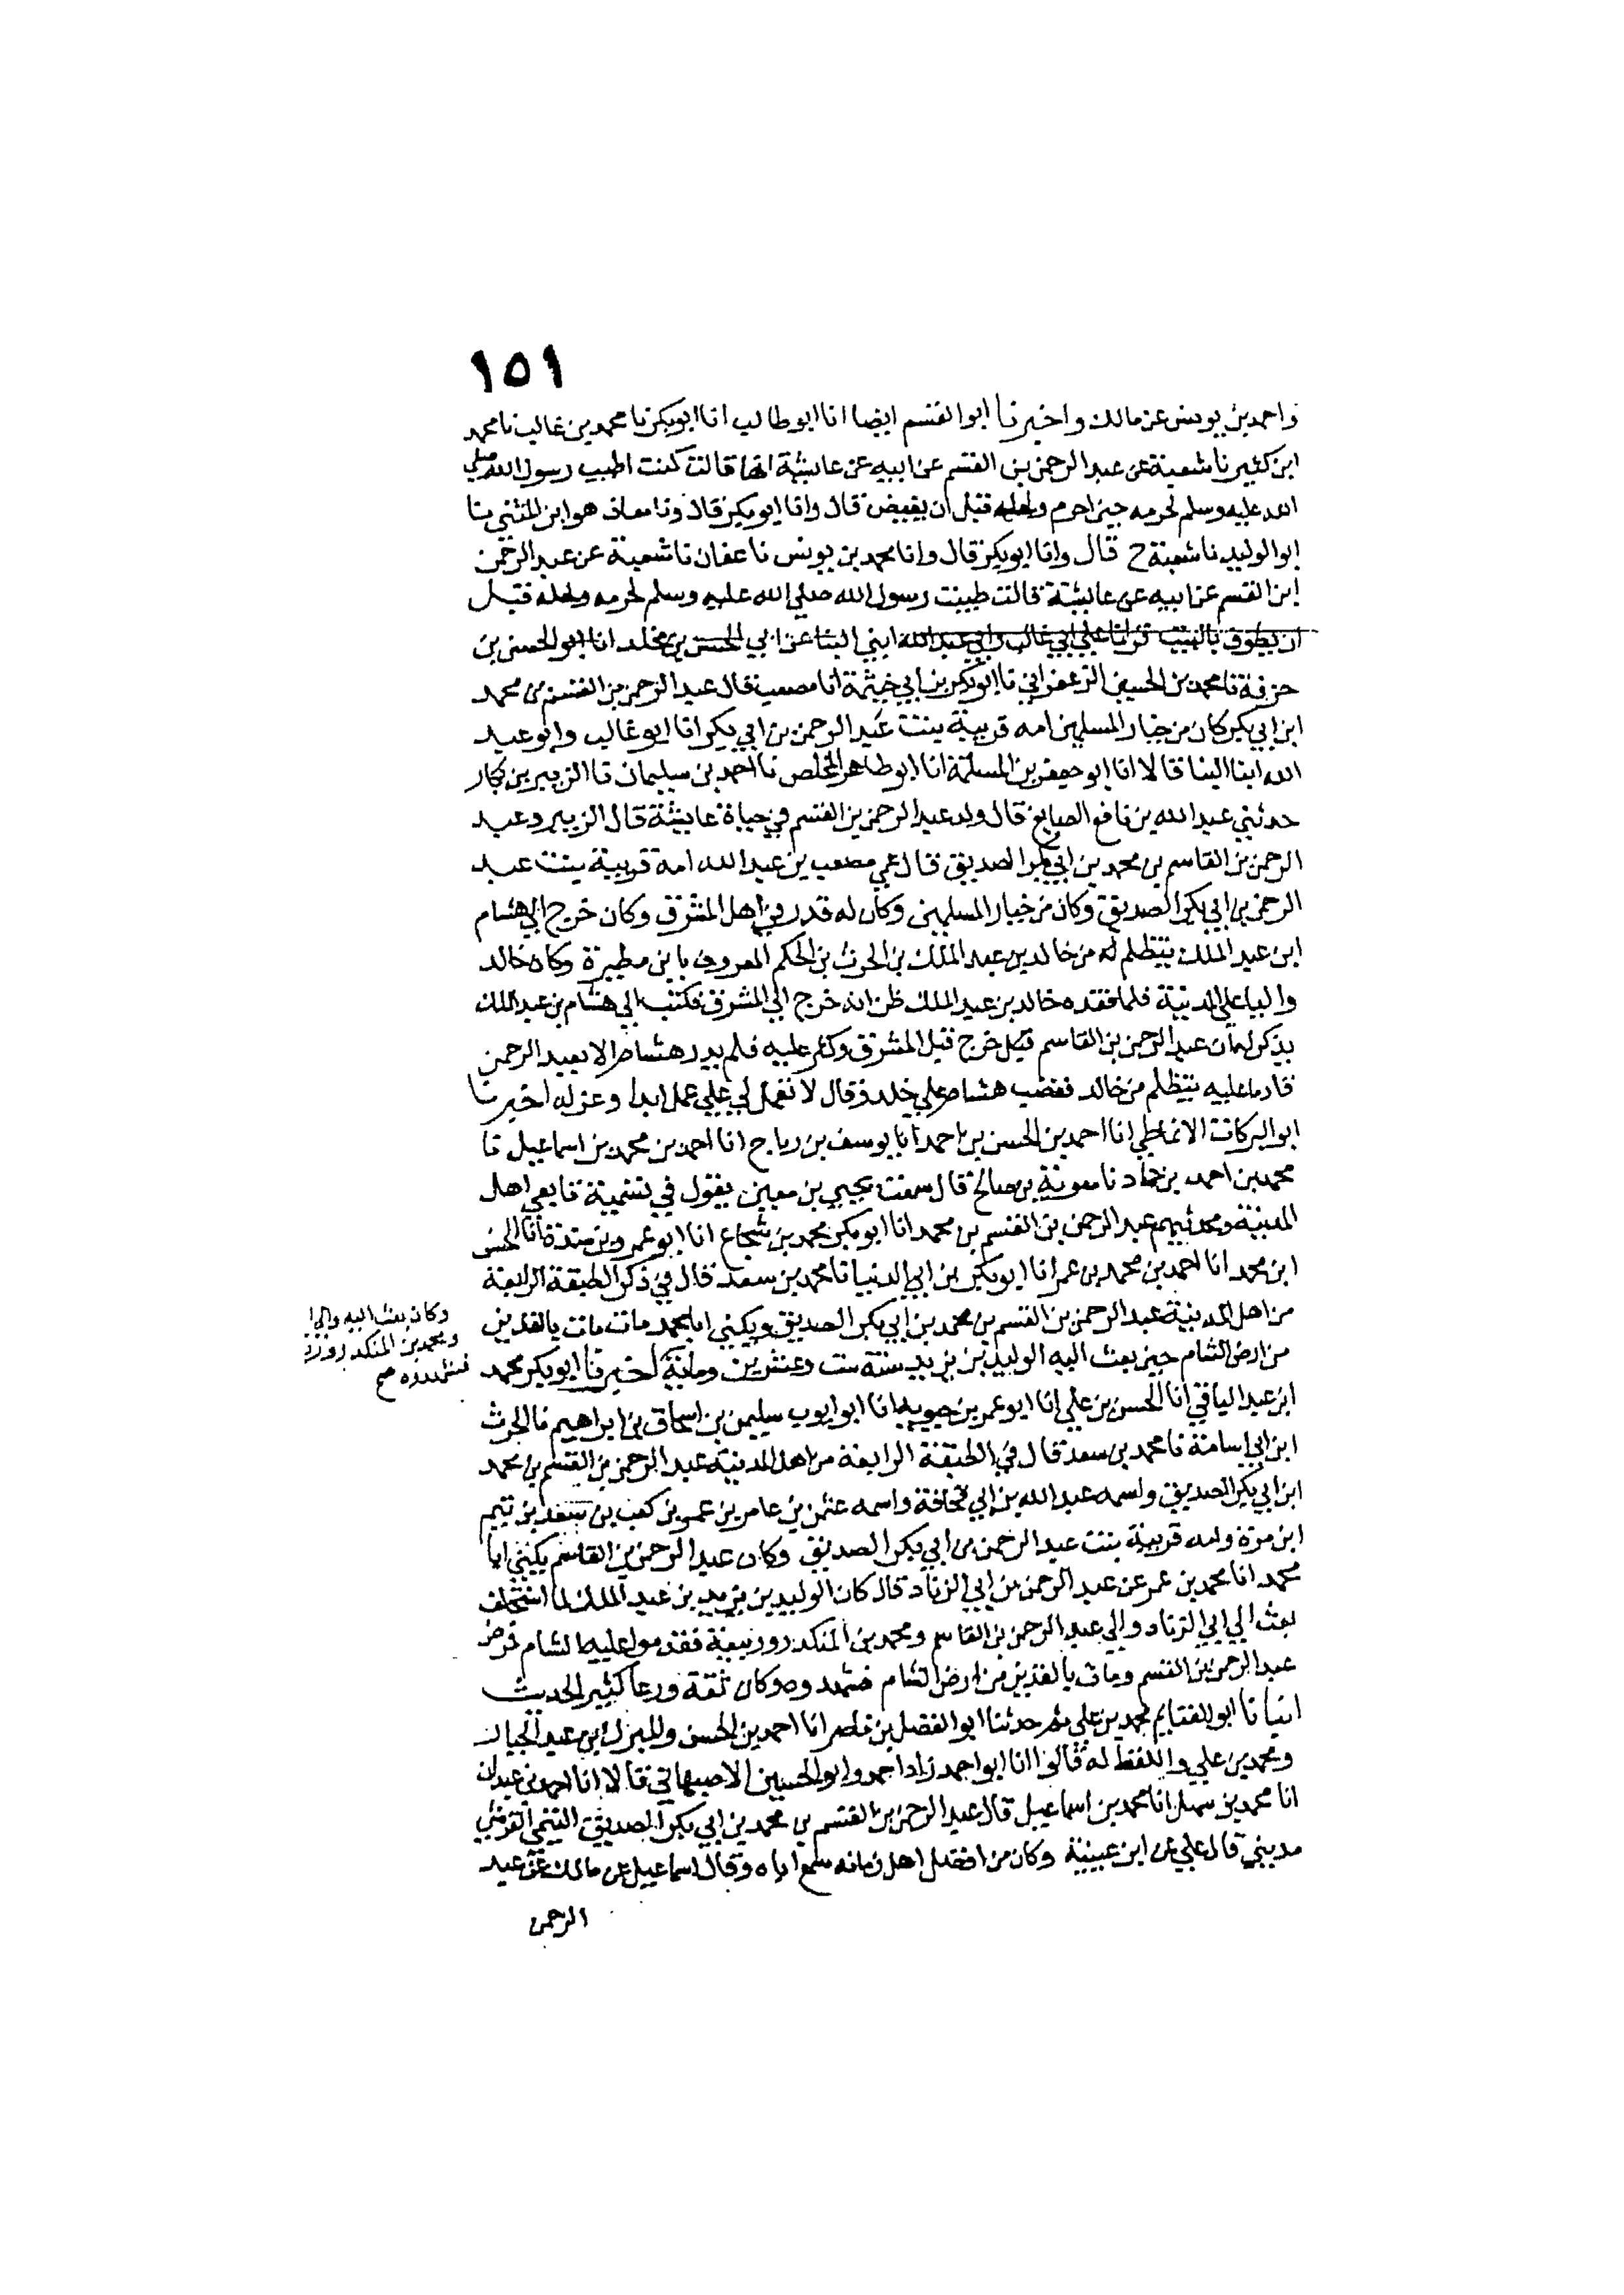 ١٥١
واحمد بن يونس عن مالك واخبرنا ابوالقسم ايضا انا ابوطالب انا ابوبكر نا محمد بن غالب نا محمد
ابن كثير نا شعبة عن عبد الرحمن بن القسم عن ابيه عن عايشة انها قالت كنت اطيب رسول الله صلي
الله عليه وسلم لحرمه حين احرم ولحله قبل ان يفيض قال وانا ابوبكر قال ونا معاذ هو ابن المثني نا
ابوالوليد نا شعبة ح قال وانا ابوبكر قال وانا محمد بن يونس نا عفان نا شعبة عن عبد الرحمن
ابن القسم عن ابيه عن عايشة قالت طيبت رسول الله صلي الله عليه وسلم لحرمه ولحله قبل
ان يطوف بالبيت قرانا علي ابي غالب وابي عبد الله ابني البنا عن ابي الحسن بن مخلد انا ابوالحسن بن
خزفة نا محمد بن الحسين الزعفراني نا ابوبكر بن ابي خيثمة انا مصعب قال عبد الرحمن بن القسم بن محمد
ابن ابي بكر كان من خيار المسلمين امه قريبة بنت عبد الرحمن بن ابي بكر انا ابوغالب وابوعبد
الله ابنا البنا قالا انا ابوجعفر بن المسلمة انا ابوطاهر المخلص نا احمد بن سليمان نا الزبير بن بكار
حدثني عبد الله بن نافع الصايغ قال ولد عبد الرحمن بن القسم في حياة عايشة قال الزبير وعبد
الرحمن بن القاسم بن محمد بن ابي بكر الصديق قال عمي مصعب بن عبد الله امه قريبة بنت عبد
الرحمن بن ابي بكر الصديق وكان من خيار المسلمين وكان له قدر في اهل المشرق وكان خرج الي هشام
ابن عبد الملك يتظلم له من خالد بن عبد الملك بن الحرث بن الحكم المعروف بابن مطيرة وكان خالد
واليا علي المدينة فلما فقده خالد بن عبد الملك ظن انه خرج الي المشرق فكتب الي هشام بن عبد الملك
يذكر له ان عبد الرحمن بن القاسم قبل خرج قبل المشرق وكثر عليه فلم يدر هشام الا بعبد الرحمن
قادما عليه يتظلم من خالد فغضب هشام علي خالد وقال لا تعمل لي علي عمل ابدا وعزله اخبرنا
ابوالبركات الانماطي انا احمد بن الحسن بن احمد انا يوسف بن رباح انا احمد بن محمد بن اسماعيل نا
محمد بن احمد بن حماد نا معوية بن صالح قال سمعت يحيي بن معين يقول في تسمية تابعي اهل
المدينة ومحدثيهم عبد الرحمن بن القسم بن محمد انا ابوبكر محمد بن شجاع انا ابوعمرو بن مندة انا الحسن
ابن محمد انا احمد بن محمد بن عمر انا ابوبكر بن ابي الدنيا نا محمد بن سعد قال في ذكر الطبقة الرابعة
من اهل المدينة عبد الرحمن بن القسم بن محمد بن ابي بكر الصديق ويكني ابا محمد مات مات بالفدين
من ارض الشام حين بعث اليه الوليد بن يزيد سنة ست وعشرين وماية اخبرنا ابوبكر محمد
وكان بعث اليه والي ا
ومحمد بن المنكدر
صح
ابن عبد الباقي انا الحسن بن علي انا ابوعمر بن حيويه انا ابوايوب سليمن بن اسحاق بن ابراهيم نا الحرث
ابن ابي اسامة نا محمد بن سعد قال في الطبقة الرابعة من اهل المدينة عبد الرحمن بن القسم بن محمد
ابن ابي بكر الصديق واسمه عبد الله بن ابي قحافة واسمه عثمن بن عامر بن عمرو بن كعب بن سعد بن تيم
ابن مرة وامه قريبة بنت عبد الرحمن بن ابي بكر الصديق وكان عبد الرحمن بن القاسم يكني ابا
محمد انا محمد بن عمر عن عبد الرحمن بن ابي الزناد قال كان الوليد بن يزيد بن عبد الملك لما استخلف
بعث الي ابي الزناد والي عبد الرحمن بن القاسم ومحمد بن المنكدر وربيعة فقدموا عليه الشام فمرض
عبد الرحمن بن القسم ومات بالفدين من ارض الشام فشهدوه وكان ثقة ورعا كثير الحديث
انبانا ابوالغنايم محمد بن علي ثم حدثنا ابوالفضل بن ناصر انا احمد بن الحسن والمبرك بن عبد الجبار
ومحمد بن علي واللفظ له قالوا انا ابواحمد زاد احمد وابوالحسين الاصبهاني قالا انا احمد بن عبدان
انا محمد بن سهل انا محمد بن اسماعيل قال عبد الرحمن بن القسم بن محمد بن ابي بكر الصديق التيمي القرشي
مديني قال علي عن ابن عيينة وكان من افضل اهل زمانه سمع اباه وقال اسماعيل عن مالك عن عبد
الرحمن